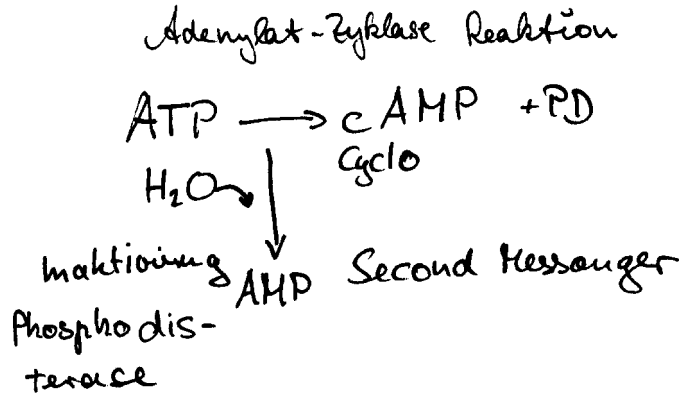 Adenylat-Zyklase Reaktion
ATP → cAMP + PD
Cyclo
H₂O
Inaktivierung AMP Second Messanger
Phosphodis-
terase